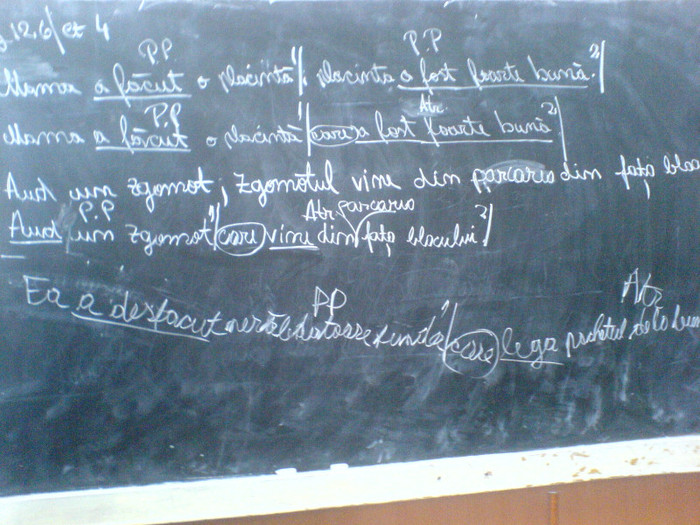 12.6/ex 4
P.P P.P
Mama a făcut o plăcintă¹/. plăcinta a fost foarte bună.²/
P.P Atr.
Mama a făcut o plăcintă¹/ care a fost foarte bună²/
Aud un zgomot; zgomotul vine din parcarea din fața
P.P Atr parcarea
Aud un zgomot¹/ care vine din fața blocului.²/
PP Atr
Ea a desfăcut nerăbdătoare funda¹/ care lega pachetul de la